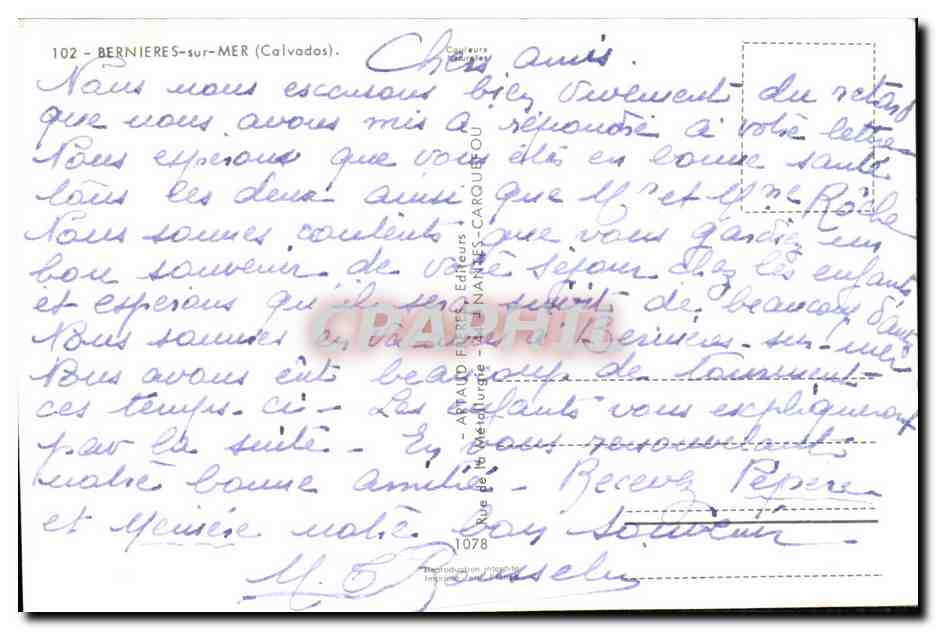 102 - BERNIERES-sur-MER (Calvados).
Couleurs
Naturelles
Chers amis.
Nous nous escusons bien vivement du retard
que nous avons mis a répondre a votre lettre
Nous esperons que vous êtes en bonne santé
tous les deux ainsi que Mr et Mme Roche
Nous sommes contents que vous gardiez un
bon souvenir de votre sejour chez les enfants
et esperons qu'il sera suivit de beaucoup d'autres
Nous sommes en vacances a Bernieres-sur-mer
Nous avons eut beaucoup de tourment
ces temps-ci - Les enfants vous expliqueront
par la suite - En vous renouvelant
notre bonne amitié - Recevez Pépère
et Mémère notre bon souvenir
ARTAUD FRERES, Editeurs
Rue de la Métallurgie - 44 - NANTES-CARQUEFOU
CPAPHIL
1078
Reproduction interdite